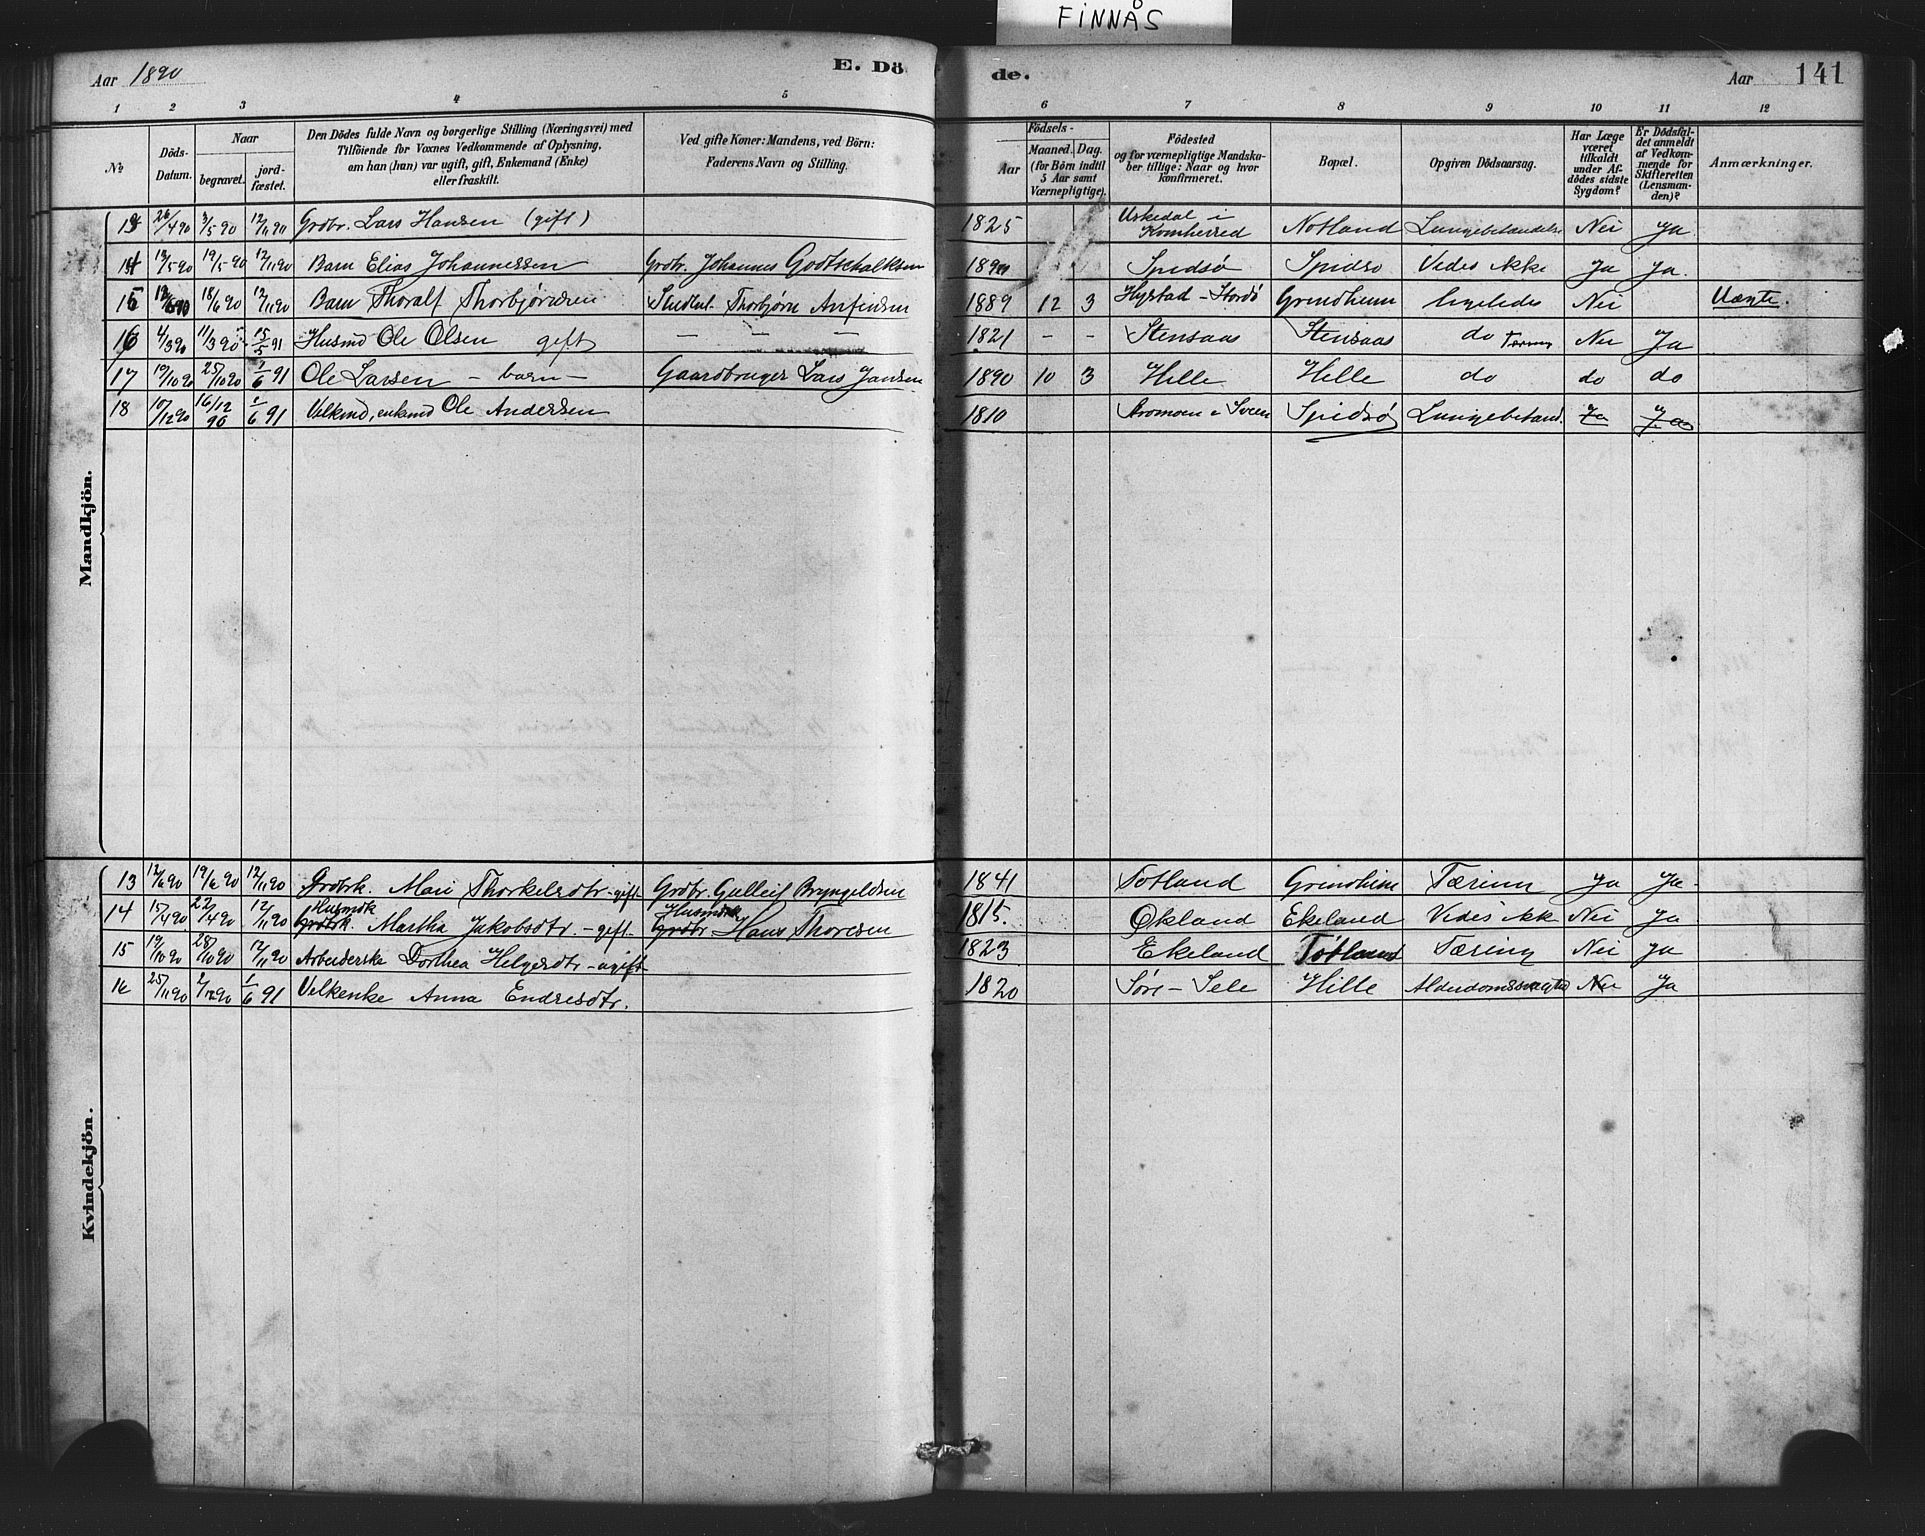 FINNÅS
Aar 1890
E. Dö
de.
Aar
141
1 2 3 4 5 6 7 8 9 10 11 12
No
Döds-Datum.
Naar
begravet.
jord-fæstet.
Den Dödes fulde Navn og borgerlige Stilling (Næringsvei) med
Tilföiende for Voxnes Vedkommende af Oplysning,
om han (hun) var ugift, gift, Enkemand (Enke)
eller fraskilt.
Ved gifte Koner: Mandens, ved Börn:
Faderens Navn og Stilling.
Födsels-
Aar
Maaned. Dag.
(for Börn indtil
5 Aar samt
Værnepligtige).
Födested
og for værnepligtige Mandska-
ber tillige: Naar og hvor
konfirmeret.
Bopæl.
Opgiven Dödsaarsag.
Har Læge
været
tilkaldt
under Af-
dödes sidste
Sygdom?
Er Dödsfal-
det anmeldt
af Vedkom-
mende for
Skifteretten
(Lensman-
den)?
Anmærkninger.
Mandkjön.
13 26/4 90 3/5 90 12/11 90 Grdbr. Lars Hansen (gift) 1825 Uskedal i Kvinherred Notland Lungebetændelse Nei Ja
14 13/5 90 19/5 90 12/11 90 Barn Elias Johannessen Grdbr. Johannes Godtschalksen 1890 Spidsø Spidsø Vides ikke Ja Ja.
15 12/6 90 18/6 90 12/11 90 Barn Thoralf Thorbjørnsen Student Thorbjørn Anfindsen 1889 12 3 Hystad - Stordø Grindheim ligeledes Nei Uægte.
16 4/3 90 11/3 90 15/5 91 Husmd Ole Olsen gift — — — 1821 - - Stensaas Stensaas do Tæring Nei Ja
17 19/10 90 25/10 90 1/6 91 Ole Larsen - barn - Gaardbruger Lars Jansen 1890 10 3 Hille Hille do do do
18 10/12 90 16/12 90 1/6 91 Velkmd, enkmd Ole Andersen 1810 Spidsø Lungebetænd. Ja Ja
Kvindekjön.
13 12/6 90 19/6 90 12/11 90 Grdbrk. Mari Thorkelsdtr - gift Grdbr. Gulleif Bryngeldsen 1841 Totland Grindheim Tæring Ja Ja
14 15/4 90 22/4 90 12/11 90 Husmdk Grdbrk. Martha Jakobsdtr. - gift - Husmdk Grdbr Hans Thoresen 1815. Økland Ekeland Vides ikk Nei Ja
15 19/10 90 28/10 90 12/11 90 Arbeiderske Dorthea Helgesdtr - ugift 1823 Ekeland Totland Tæring Nei Ja
16 25/11 90 2/12 90 1/6 91 Velkenke Anna Endresdtr. 1820 Søre - Sele Hille Alderdomssvaghed Nei Ja